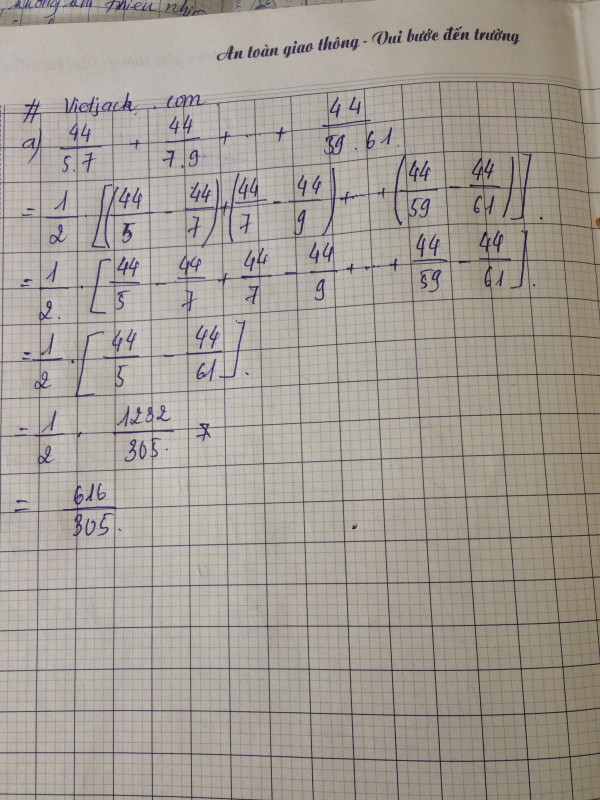 An toàn giao thông - Vui bước đến trường
# Vietjack . com
a) 44/5.7 + 44/7.9 + ... + 44/59.61.
= 1/2 . [(44/5 - 44/7) + (44/7 - 44/9) + ... + (44/59 - 44/61)].
= 1/2. . [44/5 - 44/7 + 44/7 - 44/9 + ... + 44/59 - 44/61].
= 1/2 . [44/5 - 44/61].
= 1/2 . 1232/305.
= 616/305.